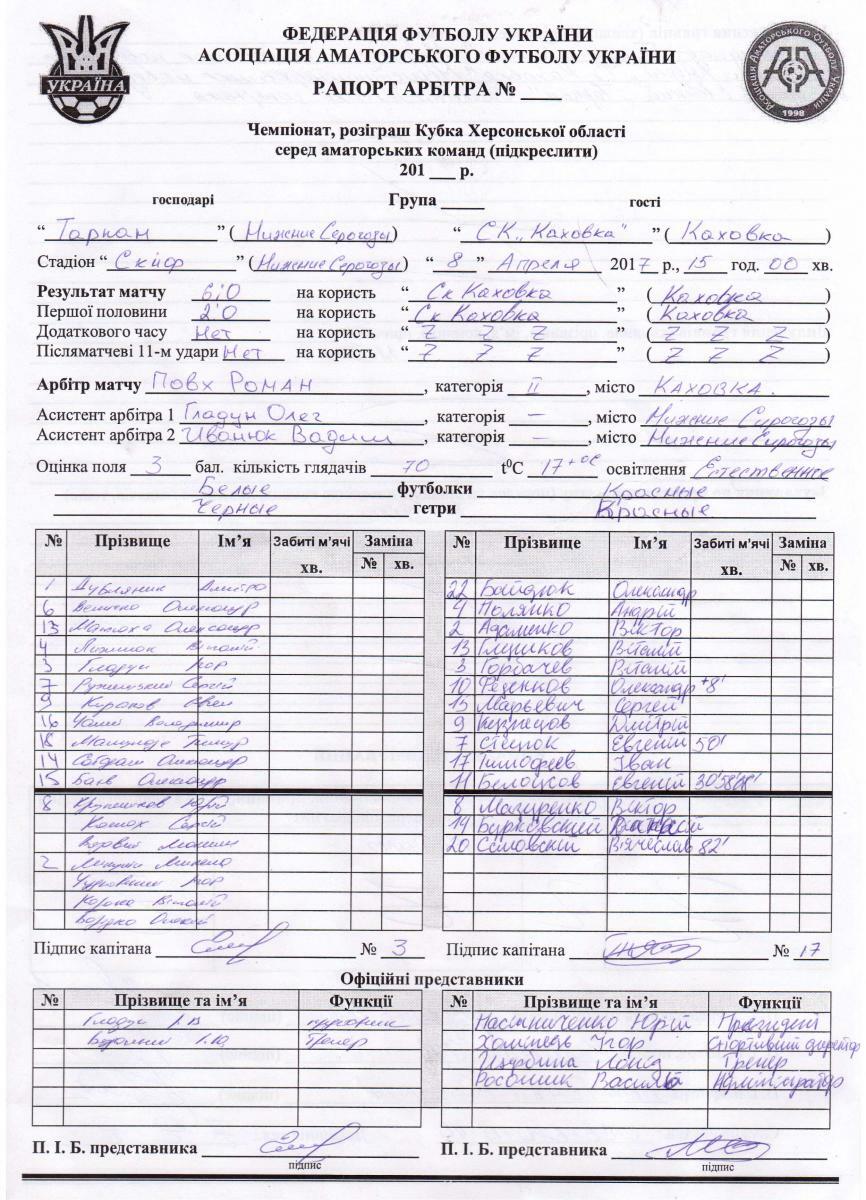 ФЕДЕРАЦІЯ ФУТБОЛУ УКРАЇНИ
АСОЦІАЦІЯ АМАТОРСЬКОГО ФУТБОЛУ УКРАЇНИ
РАПОРТ АРБІТРА № ____
УКРАЇНА
Асоціація Аматорського Футболу України
1998
Чемпіонат, розіграш Кубка Херсонської області
серед аматорських команд (підкреслити)
201 ___ р.
господарі Група ____ гості
“ Тарпан ” ( Нижние Серогозы ) “ СК „Каховка“ ” ( Каховка )
Стадіон “ Скіф ” ( Нижние Серогозы ) “ 8 ” Апреля 2017 р., 15 год. 00 хв.
Результат матчу 6:0 на користь “ Ск Каховка ” ( Каховка )
Першої половини 2:0 на користь “ Ск Каховка ” ( Каховка )
Додаткового часу Нет на користь “ Z Z Z ” ( Z Z Z )
Післяматчеві 11-м удари Нет на користь “ Z Z Z ” ( Z Z Z )
Арбітр матчу Повх Роман , категорія II , місто Каховка.
Асистент арбітра 1 Гладун Олег , категорія – , місто Нижние Сирогозы
Асистент арбітра 2 Иванюк Вадим , категорія – , місто Нижние Сирогозы
Оцінка поля 3 бал. кількість глядачів 70 t⁰C 17+ос освітлення Естественное
Белые футболки Красные
Черные гетри Красные
№ Прізвище Ім’я Забиті м'ячі хв. Заміна № хв. № Прізвище Ім’я Забиті м'ячі хв. Заміна № хв.
1 Дубляник Дмитро 22 Байдюк Олександр
6 Величко Олександр 4 Полянко Андрій
13 Олександр 2 Адаменко Віктор
4 Віталій 13 Глушков Віталій
3 Гладун Ігор 3 Горбачев Віталій
7 Сергій 10 Феденков Олександр +8'
9 15 Марьевич Сергей
16 Володимир 9 Кузнецов Дмитрій
18 Тимур 7 Стецюк Евгений 50'
14 Олександр 17 Тимофеев Іван
15 Баєв Олександр 11 Белоцков Евгений 30'58'
8 Юрій 8 Мазуренко Віктор
Сергій 14 Бурковский
Вдовий Максим 20 Вячеслав 82'
2 Микола
Ігор
Віталій
Олексій
Підпис капітана № 3 Підпис капітана № 17
Офіційні представники
№ Прізвище та ім’я Функції № Прізвище та ім’я Функції
Гладун І.В Юрій Президент
Тренер Ігор Спортивний директор
Щурбина Тренер
Адміністратор
П. І. Б. представника П. І. Б. представника
підпис підпис